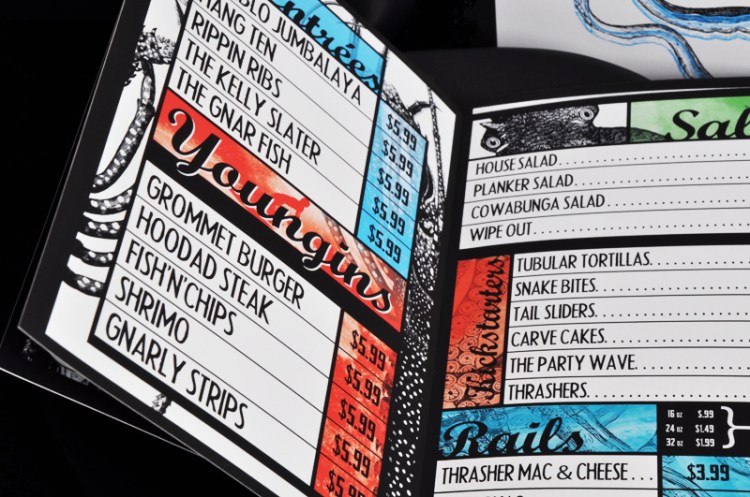 Entrées
JUMBALAYA
HANG TEN
RIPPIN RIBS
THE KELLY SLATER
THE GNAR FISH
$5.99
$5.99
$5.99
$5.99
$5.99
Youngins
GROMMET BURGER
HOODAD STEAK
FISH'N'CHIPS
SHRIMO
GNARLY STRIPS
$5.99
$5.99
$5.99
$5.99
$5.99
Sal
HOUSE SALAD
PLANKER SALAD
COWABUNGA SALAD
WIPE OUT
Kickstarters
TUBULAR TORTILLAS
SNAKE BITES
TAIL SLIDERS
CARVE CAKES
THE PARTY WAVE
THRASHERS
Rails
16 oz $.99
24 oz $1.49
32 oz $1.99
THRASHER MAC & CHEESE... $3.99